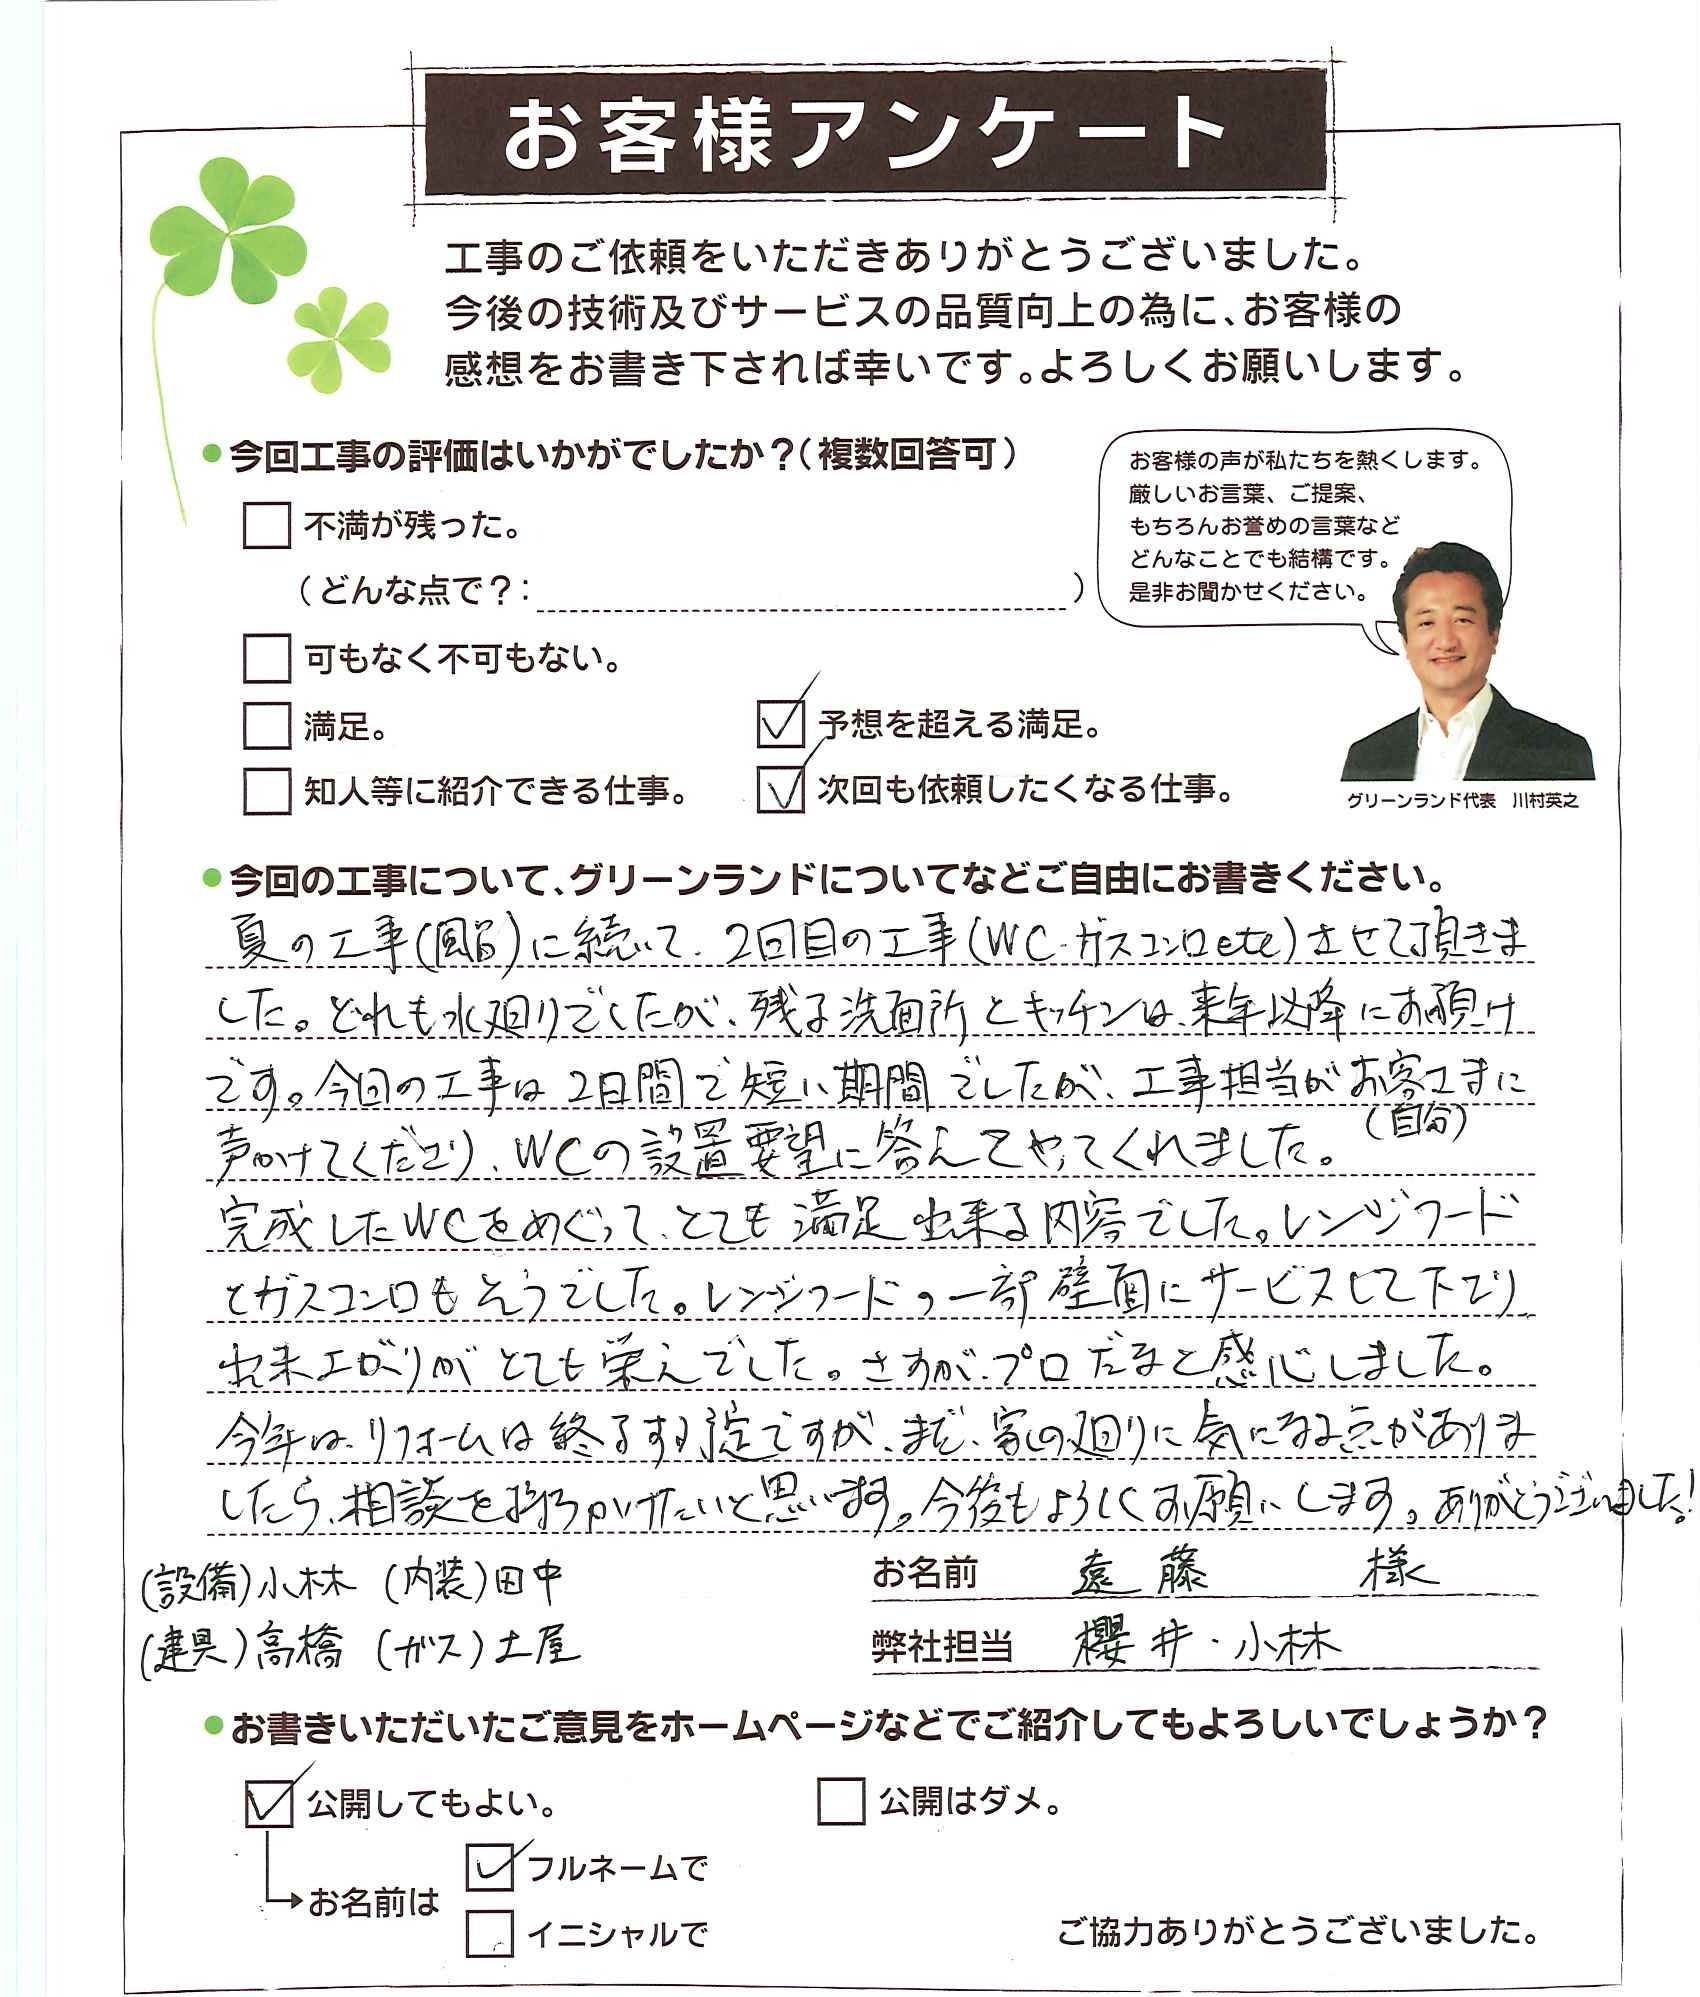 お客様アンケート
工事のご依頼をいただきありがとうございました。
今後の技術及びサービスの品質向上の為に、お客様の
感想をお書き下されば幸いです。よろしくお願いします。
●今回工事の評価はいかがでしたか？（複数回答可）
不満が残った。
（どんな点で？：　　　）
可もなく不可もない。
満足。
予想を超える満足。
知人等に紹介できる仕事。
次回も依頼したくなる仕事。
お客様の声が私たちを熱くします。
厳しいお言葉、ご提案、
もちろんお誉めの言葉など
どんなことでも結構です。
是非お聞かせください。
グリーンランド代表　川村英之
●今回の工事について、グリーンランドについてなどご自由にお書きください。
夏の工事(風呂)に続いて、2回目の工事(WC・ガスコンロetc)させて頂きま
した。どれも水廻りでしたが、残る洗面所とキッチンは、来年以降にお預け
です。今回の工事は2日間で短い期間でしたが、工事担当がお客さまに
(自分)
声かけてくださり、WCの設置要望に答えてやってくれました。
完成したWCをめぐって、とても満足出来る内容でした。レンジフード
とガスコンロもそうでした。レンジフードの一部壁面にサービスして下さり
出来上がりがとても栄えでした。さすが、プロだなと感心しました。
今年は、リフォームは終了する予定ですが、まだ、家の廻りに気になる点がありま
したら、相談を持ちかけたいと思います。今後もよろしくお願いします。ありがとうございました！
(設備)小林 (内装)田中
(建具)高橋 (ガス)土屋
お名前　遠藤　様
弊社担当　櫻井・小林
●お書きいただいたご意見をホームページなどでご紹介してもよろしいでしょうか？
公開してもよい。
公開はダメ。
お名前は
フルネームで
イニシャルで
ご協力ありがとうございました。